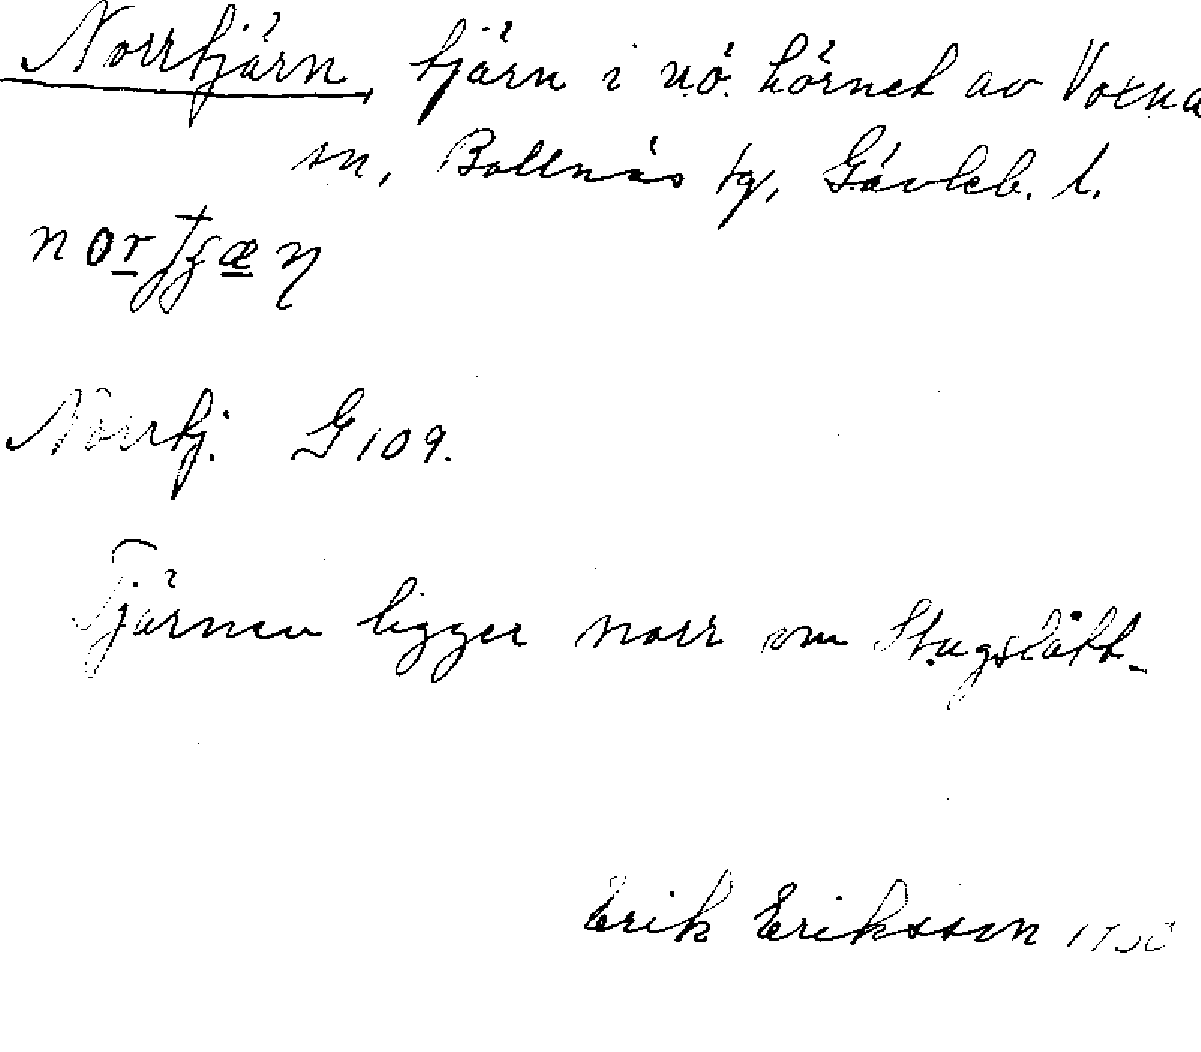 Norrtjärn, tjärn i nö. hörnet av Voxna
sn, Bollnäs tg, Gävleb. l.
Norrtj. G 109.
Tjärnen ligger norr om Stugslått-
Erik Eriksson